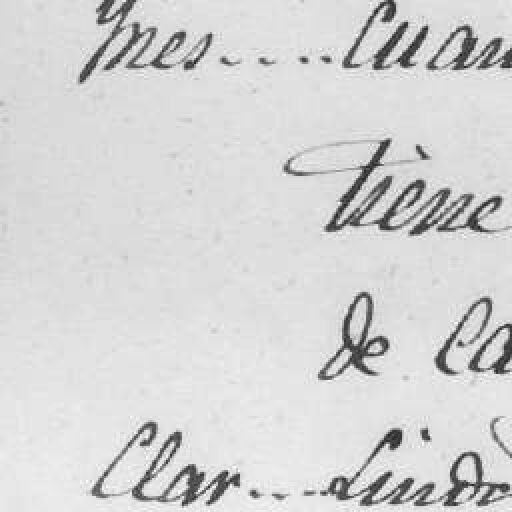 Ynes.....Cuan
tiene
de Ca
Clar....Lindo